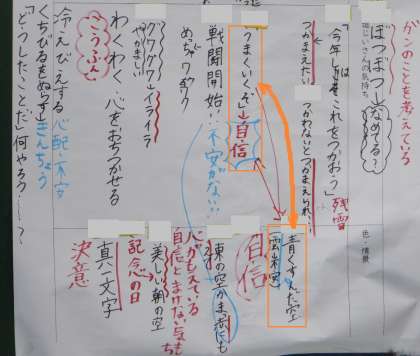 かごのことを考えて
ほほう→なめてる?
じいさんの気持ち
「今年はこれをつかおう」
残雪
つかまえた!
つかわないとつかまえられ…
「うまくいくぞ」→自信
戦闘開始…不安がない
めっちゃワクワク
グワグワ→イライラ
やかましい
わくわく 心をおちつかせる
こうふん
冷えびえする 心配・不安
くちびるをぬらす きんちょう
「どうしたことだ」何やろう…?
色・情景
青くすんだ空
自信
東の空が真っ赤にもえ
心がもえている
自信とまけない気もち
美しい朝の空
記念の日
真一文字
決意